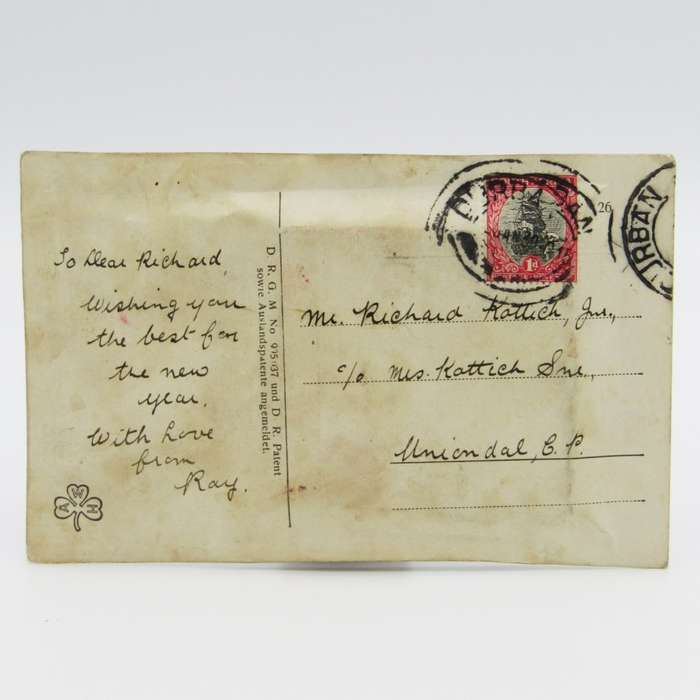 To Dear Richard,
Wishing you
the best for
the new
year.
With Love
from
Ray.
A W H
D. R. G. M No 935037 und D. R. Patent
sowie Auslandspatente angemeldet.
DURBAN
1d
26
DURBAN
Mr. Richard Kottich, Jnr.,
c/o Mrs. Kottich Snr.,
Uniondal, C. P.